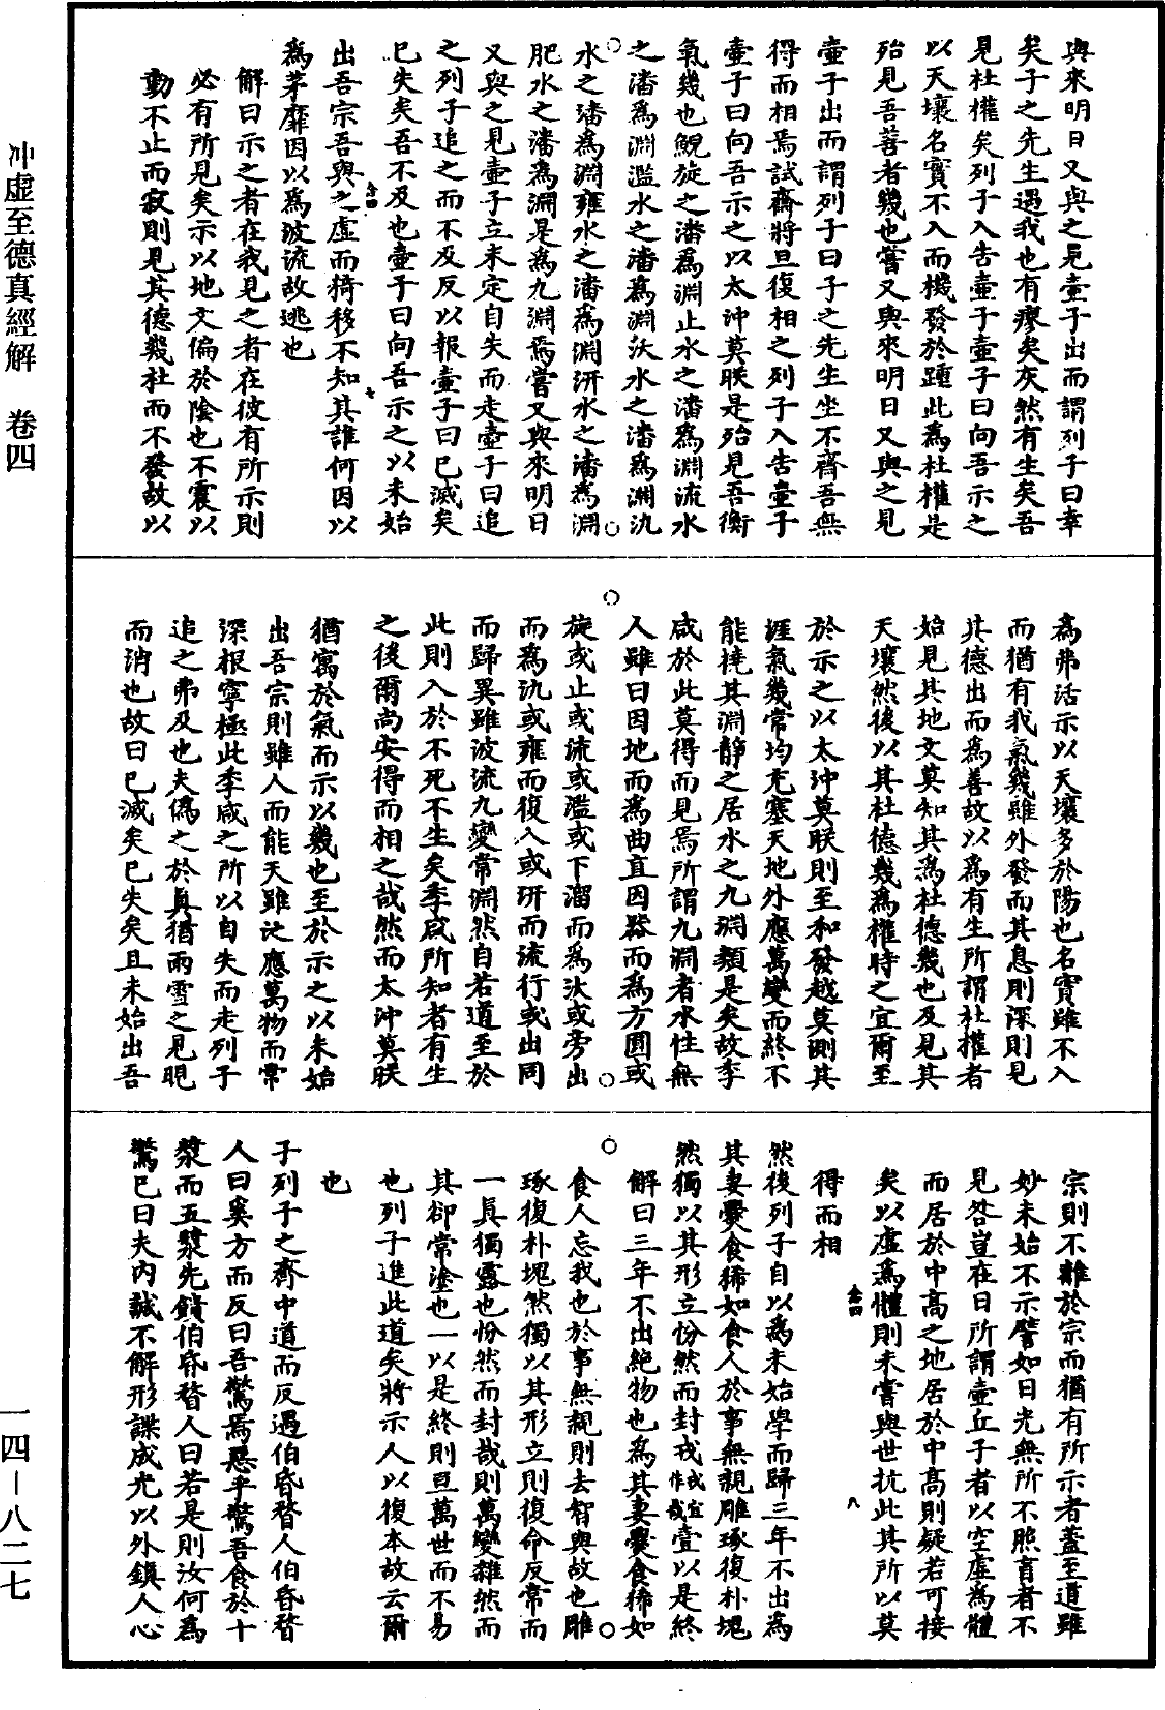 與來明日又與之見壺子出而謂列子曰幸
矣子之先生遇我也有瘳矣灰然有生矣吾
見杜權矣列子入告壺子壺子曰向吾示之
以天壤名實不入而機發於踵此為杜權是
殆見吾善者幾也嘗又與來明日又與之見
壺子出而謂列子曰子之先生坐不齋吾無
得而相焉試齋將且復相之列子入告壺子
壺子曰向吾示之以太沖莫眹是殆見吾衡
氣幾也鯢旋之潘為淵止水之潘為淵流水
之潘為淵濫水之潘為淵沃水之潘為淵氿
水之潘為淵雍水之潘為淵汧水之潘為淵
肥水之潘為淵是為九淵焉嘗又與來明日
又與之見壺子立未定自失而走壺子曰追
之列子追之而不及反以報壺子曰已滅矣
已失矣吾不及也壺子曰向吾示之以未始
出吾宗吾與之虛而猗移不知其誰何因以
為茅靡因以為波流故逃也
解曰示之者在我見之者在彼有所示則
必有所見矣示以地文偏於陰也不震以
動不止而寂則見其德幾杜而不發故以
為弗活示以天壤多於陽也名實雖不入
而猶有我氣幾雖外發而其息則深則見
其德出而為善故以為有生所謂杜權者
始見其地文莫知其為杜德幾也及見其
天壤然後以其杜德幾為權時之宜爾至
於示之以太沖莫眹則至和發越莫測其
涯氣幾常均充塞天地外應萬變而終不
能撓其淵靜之居水之九淵類是矣故季
咸於此莫得而見焉所謂九淵者水性無
人雖曰因地而為曲直因器而為方圓或
旋或止或流或濫或下溜而為汏或旁出
而為氿或雍而復入或汧而流行或出同
而歸異雖波流九變常淵然自若道至於
此則入於不死不生矣季咸所知者有生
之後爾尚安得而相之哉然而太沖莫眹
猶寓於氣而示以幾也至於示之以未始
出吾宗則雖人而能天雖汎應萬物而常
深根寧極此季咸之所以自失而走列子
追之弗及也夫偽之於真猶雨雪之見晛
而消也故曰已滅矣已失矣且未始出吾
宗則不離於宗而猶有所示者蓋至道雖
妙未始不示譬如日光無所不照盲者不
見咎豈在日所謂壺丘子者以空虛為體
而居於中高之地居於中高則疑若可接
矣以虛為體則未嘗與世抗此其所以莫
得而相
然後列子自以為未始學而歸三年不出為
其妻爨食狶如食人於事無親雕琢復朴塊
然獨以其形立㤋然而封戎戎宜作哉壹以是終
解曰三年不出絕物也為其妻爨食狶如
食人忘我也於事無親則去智與故也雕
琢復朴塊然獨以其形立則復命反常而
一真獨露也㤋然而封哉則萬變雜然而
其卻常塗也一以是終則亘萬世而不易
也列子進此道矣將示人以復本故云爾
也
子列子之齊中道而反遇伯昏瞀人伯昏瞀
人曰奚方而反曰吾驚焉惡乎驚吾食於十
漿而五漿先饋伯昏瞀人曰若是則汝何為
驚已曰夫內誠不解形諜成光以外鎮人心
冲虛至德真經解 卷四
一四—八二七